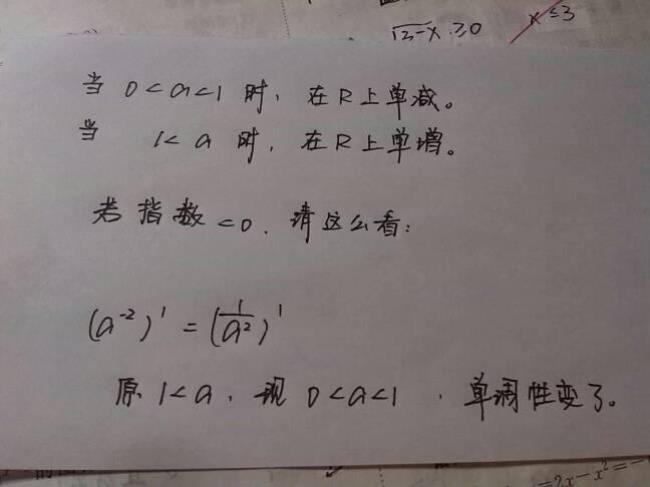 √3-x ≥0
x≤3
当 0<a<1 时，在R上单减。
当 1<a 时，在R上单增。
若指数<0，请这么看：
(a⁻²)' = (1/a²)'
原 1<a，现 0<a<1，单调性变了。
=2x-x²=-